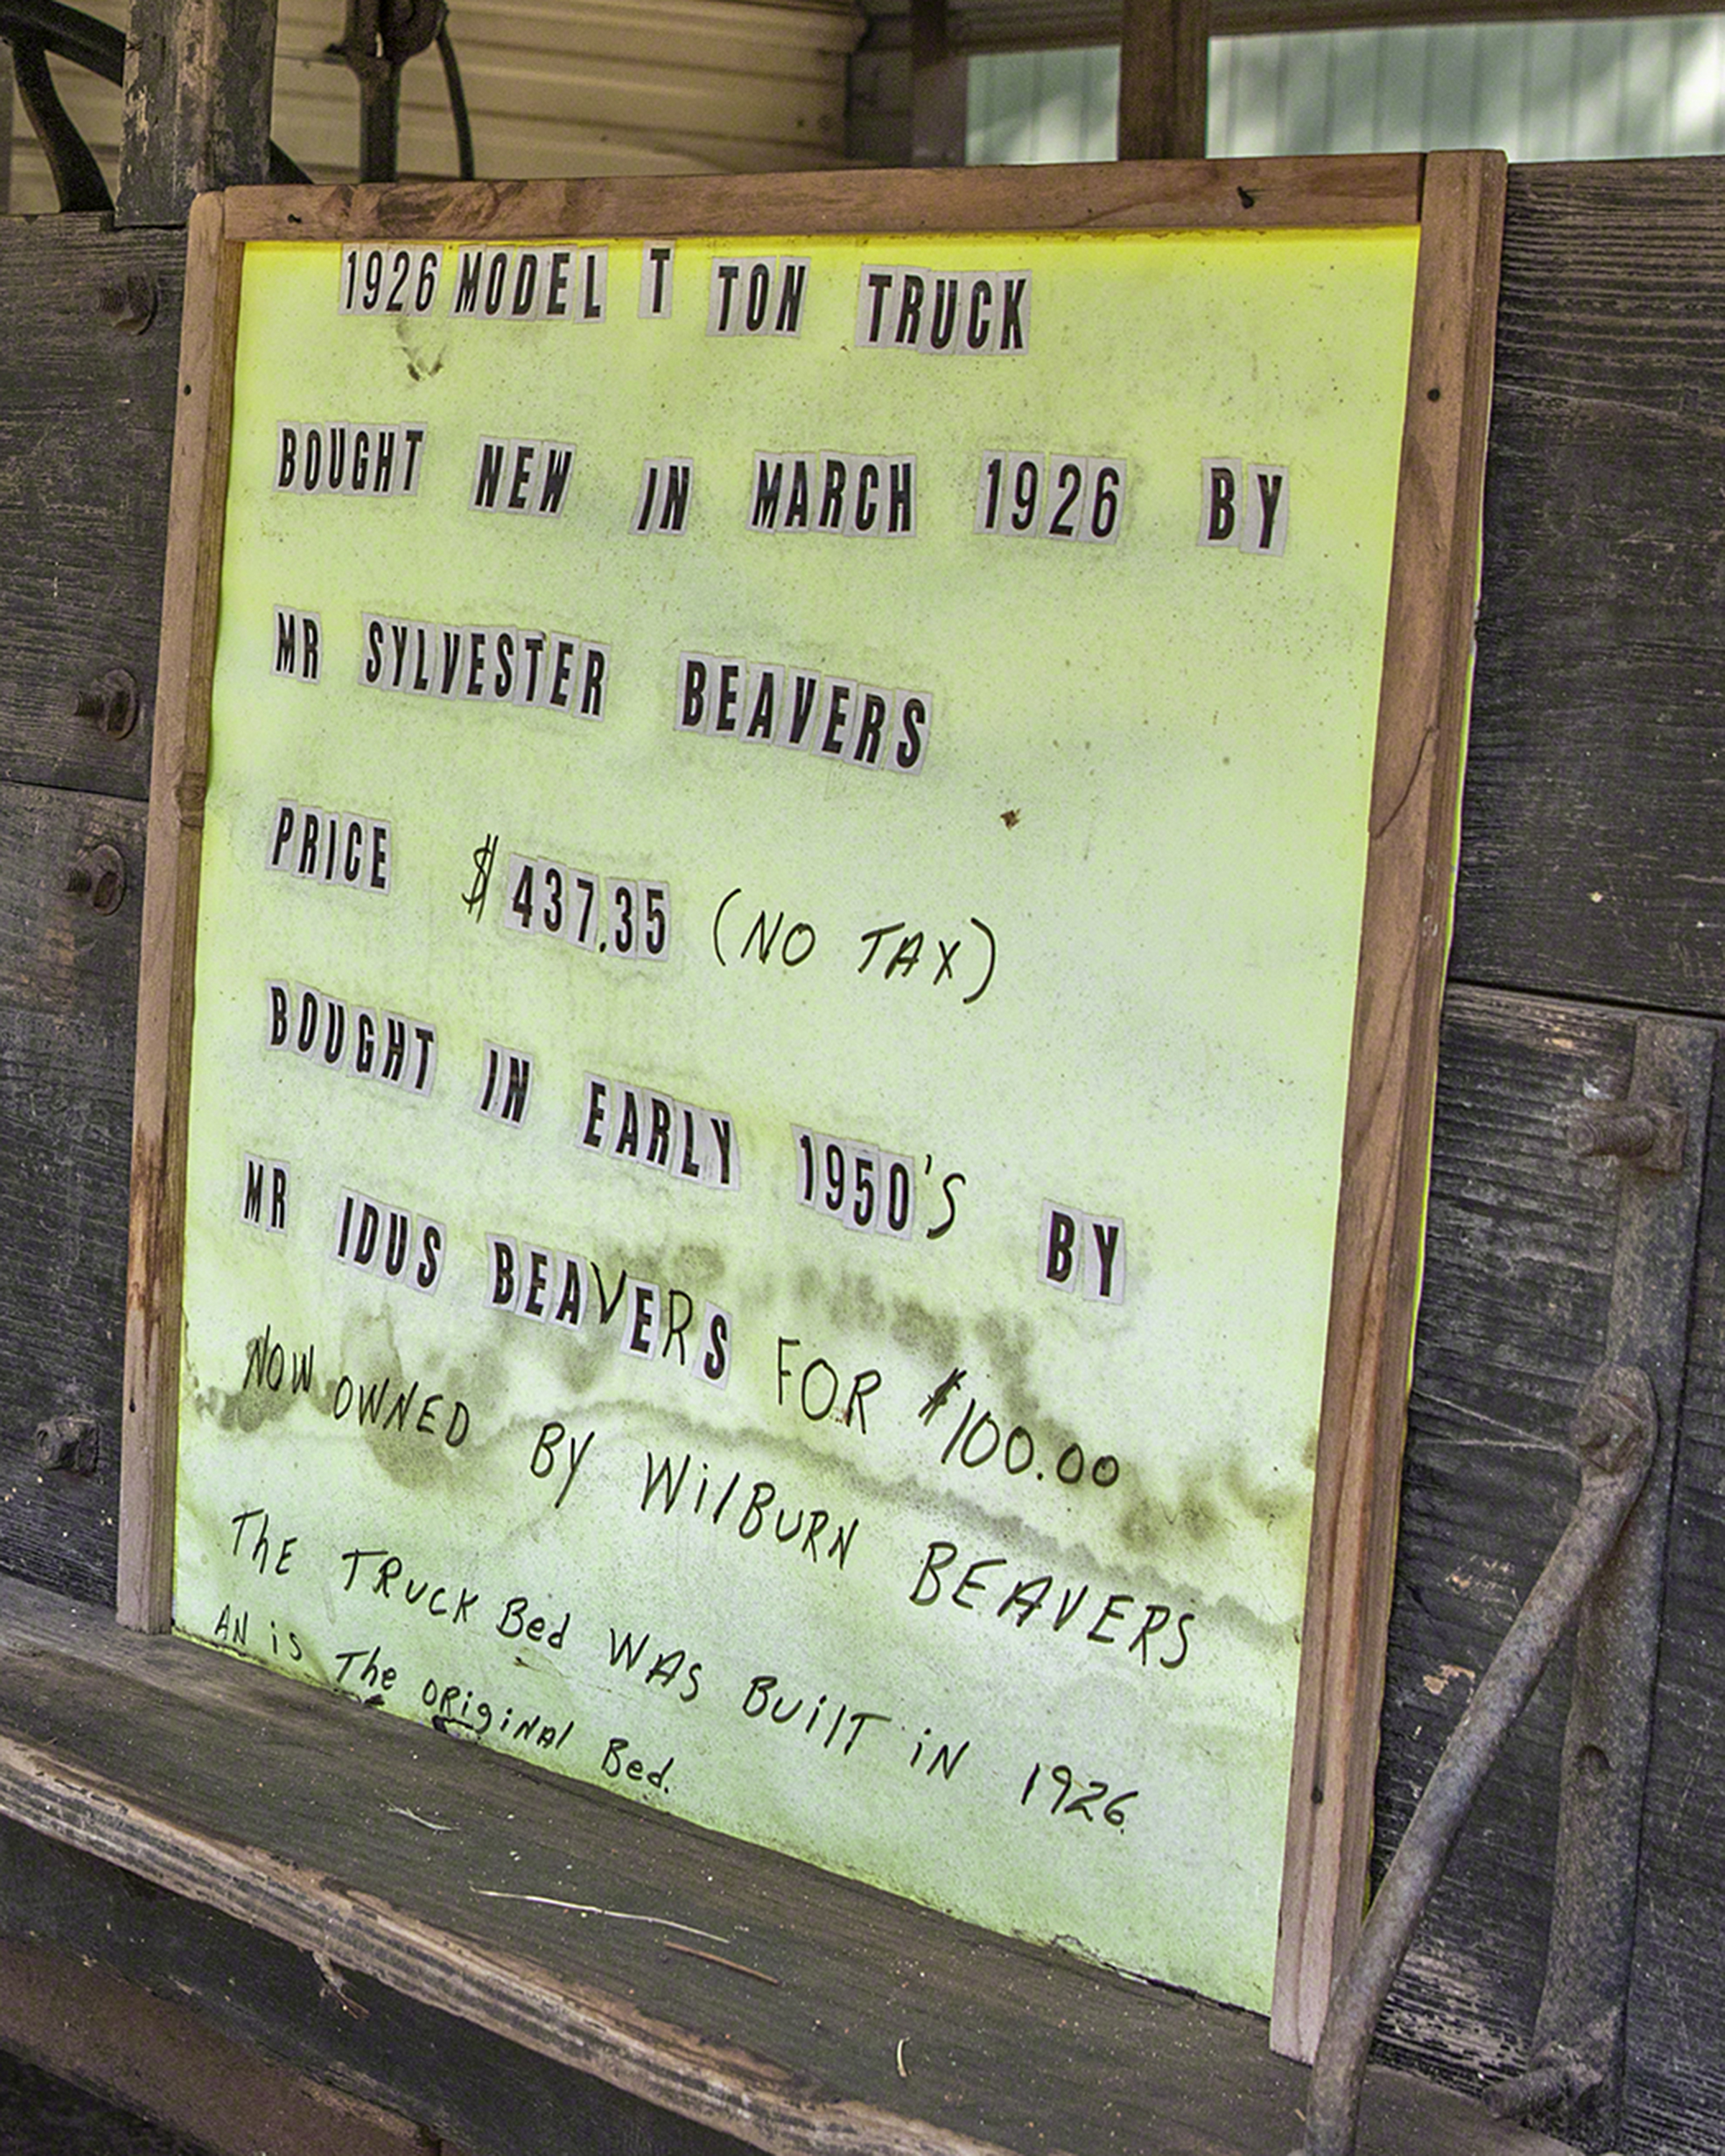 1926 MODEL T TON TRUCK
BOUGHT NEW IN MARCH 1926 BY
MR SYLVESTER BEAVERS
PRICE $437.35 (NO TAX)
BOUGHT IN EARLY 1950'S BY
MR IDUS BEAVERS FOR $100.00
NOW OWNED BY WilBURN BEAVERS
ThE TRUCK Bed WAS BuilT iN 1926.
AN iS The ORiginAl Bed.